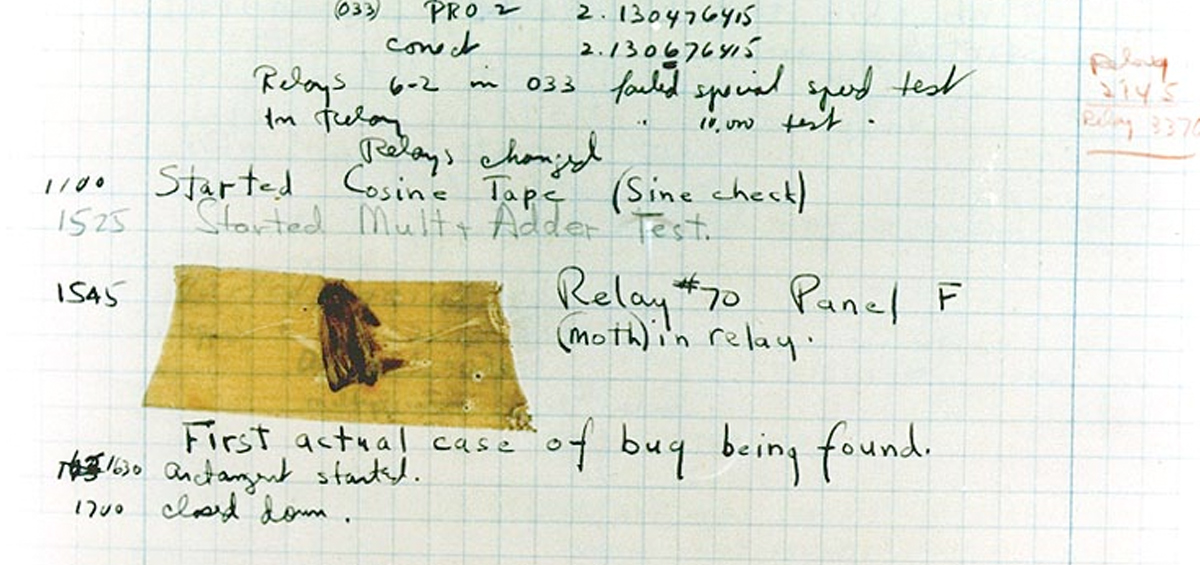 (033) PRO 2 2.130476415
conect 2.130676415
Relays 6-2 in 033 failed special speed test
In Relay " 10,000 test.
Relays changed
1100 Started Cosine Tape (Sine check)
1525 Started Mult + Adder Test.
1545 Relay #70 Panel F
(moth) in relay.
First actual case of bug being found.
1630 arctangent started.
1700 closed down.
Relay
2145
Relay 337